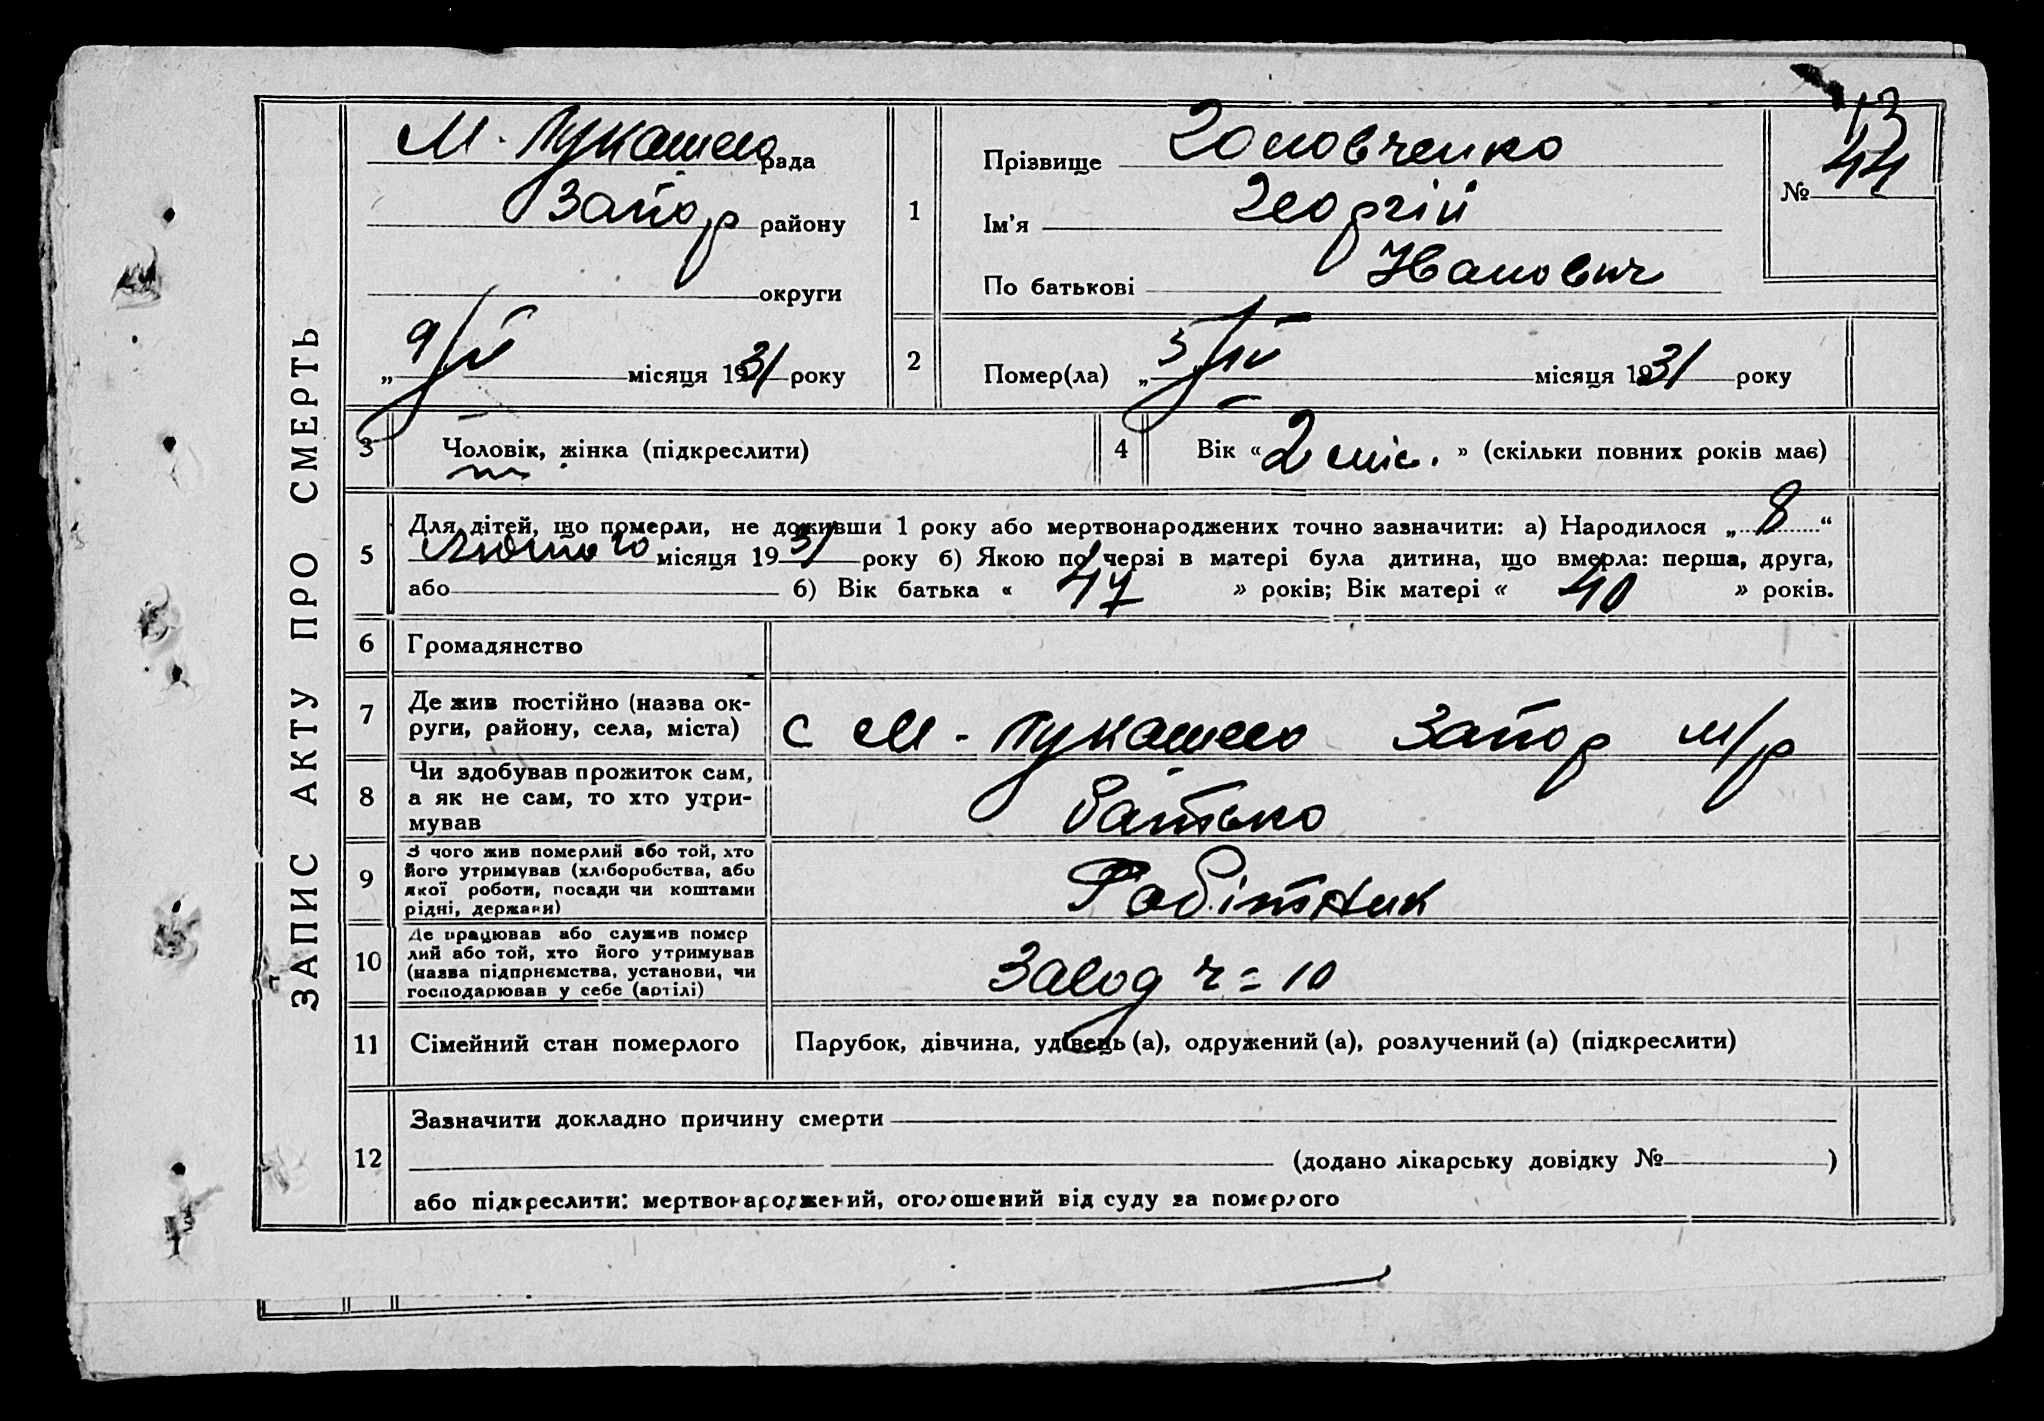 ЗАПИС АКТУ ПРО СМЕРТЬ
М. Лукашево рада
Запор району
округи
„9/IV місяця 1931 року
1
Прізвище Головченко
Ім'я Георгій
По батькові Иванович
№ 13
44
2
Помер(ла) „5/IV місяця 1931 року
3
Чоловік, жінка (підкреслити)
4
Вік «2 міс.» (скільки повних років має)
5
Для дітей, що померли, не доживши 1 року або мертвонароджених точно зазначити: а) Народилося „8“
Лютого місяця 1931 року б) Якою по черзі в матері була дитина, що вмерла: перша, друга,
або б) Вік батька «47» років; Вік матері «40» років.
6
Громадянство
7
Де жив постійно (назва ок-
руги, району, села, міста)
с М. Лукашево Запор м/р
8
Чи здобував прожиток сам,
а як не сам, то хто утри-
мував
батько
9
З чого жив померлий або той, хто
його утримував (хліборобства, або
якої роботи, посади чи коштами
рідні, держави)
Робітник
10
Де працював або служив помер
лий або той, хто його утримував
(назва підприємства, установи, чи
господарював у себе (артілі)
Завод ч = 10
11
Сімейний стан померлого
Парубок, дівчина, удівець (а), одружений (а), розлучений (а) (підкреслити)
12
Зазначити докладно причину смерти
(додано лікарську довідку № )
або підкреслити: мертвонароджений, оголошений від суду за померлого